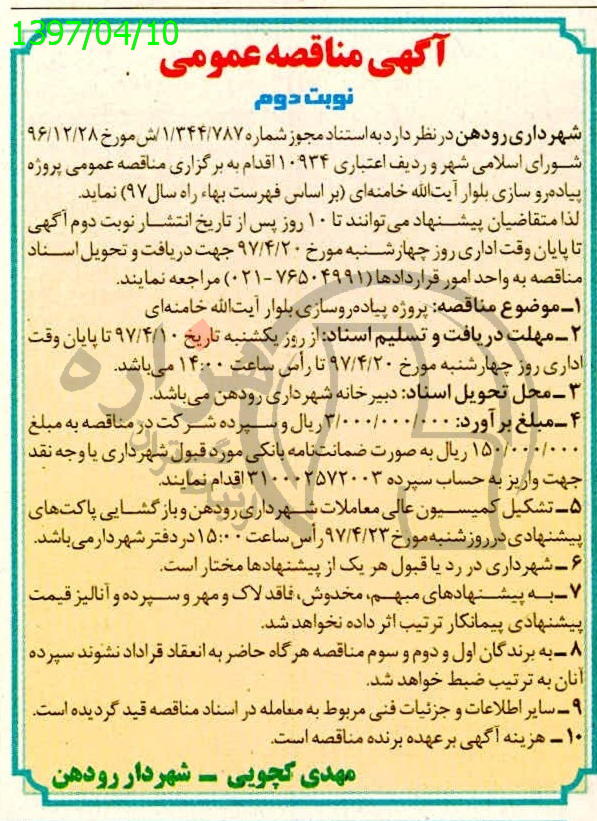 1397/04/10
آگهی مناقصه عمومی
نوبت دوم
شهرداری رودهن در نظر دارد به استناد مجوز شماره ۱/۳۴۴/۷۸۷/ش مورخ ۹۶/۱۲/۲۸
شورای اسلامی شهر و ردیف اعتباری ۱۰۹۳۴ اقدام به برگزاری مناقصه عمومی پروژه
پیاده‌رو سازی بلوار آیت‌الله خامنه‌ای (بر اساس فهرست بهاء راه سال ۹۷) نماید.
لذا متقاضیان پیشنهاد می‌توانند تا ۱۰ روز پس از تاریخ انتشار نوبت دوم آگهی
تا پایان وقت اداری روز چهارشنبه مورخ ۹۷/۴/۲۰ جهت دریافت و تحویل اسناد
مناقصه به واحد امور قراردادها (۷۶۵۰۴۹۹۱-۰۲۱) مراجعه نمایند.
۱ـ موضوع مناقصه: پروژه پیاده‌روسازی بلوار آیت‌الله خامنه‌ای
۲ـ مهلت دریافت و تسلیم اسناد: از روز یکشنبه تاریخ ۹۷/۴/۱۰ تا پایان وقت
اداری روز چهارشنبه مورخ ۹۷/۴/۲۰ تا رأس ساعت ۱۴:۰۰ می‌باشد.
۳ـ محل تحویل اسناد: دبیرخانه شهرداری رودهن می‌باشد.
۴ـ مبلغ برآورد: ۳/۰۰۰/۰۰۰/۰۰۰ ریال و سپرده شرکت در مناقصه به مبلغ
۱۵۰/۰۰۰/۰۰۰ ریال به صورت ضمانت‌نامه بانکی مورد قبول شهرداری یا وجه نقد
جهت واریز به حساب سپرده ۳۱۰۰۰۲۵۷۲۰۰۳ اقدام نمایند.
۵ـ تشکیل کمیسیون عالی معاملات شهرداری رودهن و بازگشایی پاکت‌های
پیشنهادی در روز شنبه مورخ ۹۷/۴/۲۳ رأس ساعت ۱۵:۰۰ در دفتر شهردار می‌باشد.
۶ـ شهرداری در رد یا قبول هر یک از پیشنهادها مختار است.
۷ـ به پیشنهادهای مبهم، مخدوش، فاقد لاک و مهر و سپرده و آنالیز قیمت
پیشنهادی پیمانکار ترتیب اثر داده نخواهد شد.
۸ـ به برندگان اول و دوم و سوم مناقصه هرگاه حاضر به انعقاد قراداد نشوند سپرده
آنان به ترتیب ضبط خواهد شد.
۹ـ سایر اطلاعات و جزئیات فنی مربوط به معامله در اسناد مناقصه قید گردیده است.
۱۰ـ هزینه آگهی بر عهده برنده مناقصه است.
مهدی کچویی ـ شهردار رودهن
هزاره